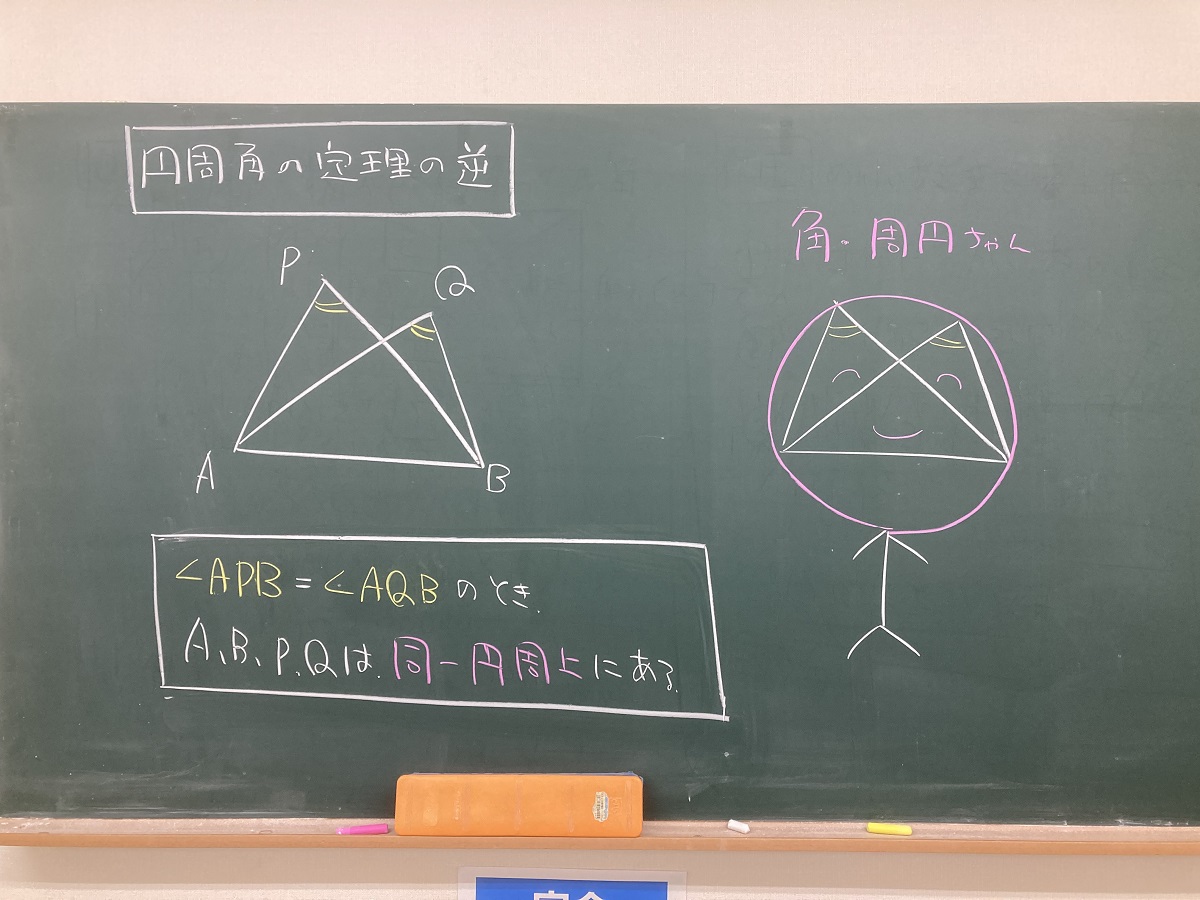 円周角の定理の逆
P
Q
A
B
∠APB=∠AQBのとき、
A、B、P、Qは、同一円周上にある。
角・周円ちゃん